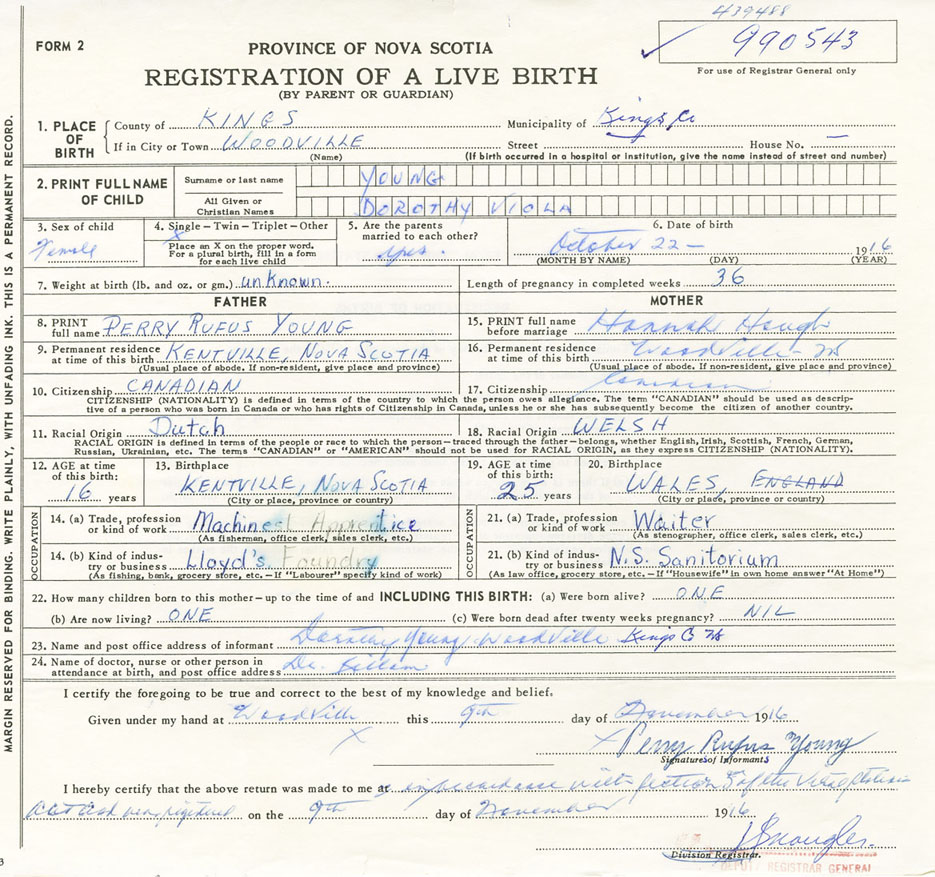 439488
FORM 2
PROVINCE OF NOVA SCOTIA
990543
REGISTRATION OF A LIVE BIRTH
For use of Registrar General only
(BY PARENT OR GUARDIAN)
1. PLACE OF BIRTH
County of KINGS Municipality of Kings Co
If in City or Town WOODVILLE Street House No. —
(Name) (If birth occurred in a hospital or institution, give the name instead of street and number)
2. PRINT FULL NAME OF CHILD
Surname or last name YOUNG
All Given or Christian Names DOROTHY VIOLA
3. Sex of child Female
4. Single – Twin – Triplet – Other
X
Place an X on the proper word.
For a plural birth, fill in a form
for each live child
5. Are the parents
married to each other?
yes.
6. Date of birth
October 22 – 1916
(MONTH BY NAME) (DAY) (YEAR)
7. Weight at birth (lb. and oz. or gm.) unknown. Length of pregnancy in completed weeks 36
FATHER MOTHER
8. PRINT full name PERRY RUFUS YOUNG
15. PRINT full name before marriage Hannah Hough
9. Permanent residence at time of this birth KENTVILLE, NOVA SCOTIA
(Usual place of abode. If non-resident, give place and province)
16. Permanent residence at time of this birth Woodville – NS
(Usual place of abode. If non-resident, give place and province)
10. Citizenship CANADIAN 17. Citizenship Canadian
CITIZENSHIP (NATIONALITY) is defined in terms of the country to which the person owes allegiance. The term "CANADIAN" should be used as descrip-
tive of a person who was born in Canada or who has rights of Citizenship in Canada, unless he or she has subsequently become the citizen of another country.
11. Racial Origin Dutch 18. Racial Origin WELSH
RACIAL ORIGIN is defined in terms of the people or race to which the person – traced through the father – belongs, whether English, Irish, Scottish, French, German,
Russian, Ukrainian, etc. The terms "CANADIAN" or "AMERICAN" should not be used for RACIAL ORIGIN, as they express CITIZENSHIP (NATIONALITY).
12. AGE at time of this birth: 16 years
13. Birthplace
KENTVILLE, NOVA SCOTIA
(City or place, province or country)
19. AGE at time of this birth: 25 years
20. Birthplace
WALES, ENGLAND
(City or place, province or country)
OCCUPATION
14. (a) Trade, profession or kind of work Machinest Apprentice
(As fisherman, office clerk, sales clerk, etc.)
14. (b) Kind of indus-
try or business Lloyd's Foundry
(As fishing, bank, grocery store, etc. – If "Labourer" specify kind of work)
OCCUPATION
21. (a) Trade, profession or kind of work Waiter
(As stenographer, office clerk, sales clerk, etc.)
21. (b) Kind of indus-
try or business N.S. Sanitorium
(As law office, grocery store, etc. – If "Housewife" in own home answer "At Home")
22. How many children born to this mother – up to the time of and INCLUDING THIS BIRTH: (a) Were born alive? ONE
(b) Are now living? ONE (c) Were born dead after twenty weeks pregnancy? NIL
23. Name and post office address of informant Dorothy Young Woodville Kings Co NS
24. Name of doctor, nurse or other person in
attendance at birth, and post office address Dr. Killam
I certify the foregoing to be true and correct to the best of my knowledge and belief.
Given under my hand at Woodville this 9th day of November 1916
X
X Perry Rufus Young
Signatures of Informants
I hereby certify that the above return was made to me at in accordance with Section 5 of the Vital Statistics
Act and was registered on the 9th day of November 1916.
Division Registrar.
DEPUTY REGISTRAR GENERAL
MARGIN RESERVED FOR BINDING. WRITE PLAINLY, WITH UNFADING INK. THIS IS A PERMANENT RECORD.
3